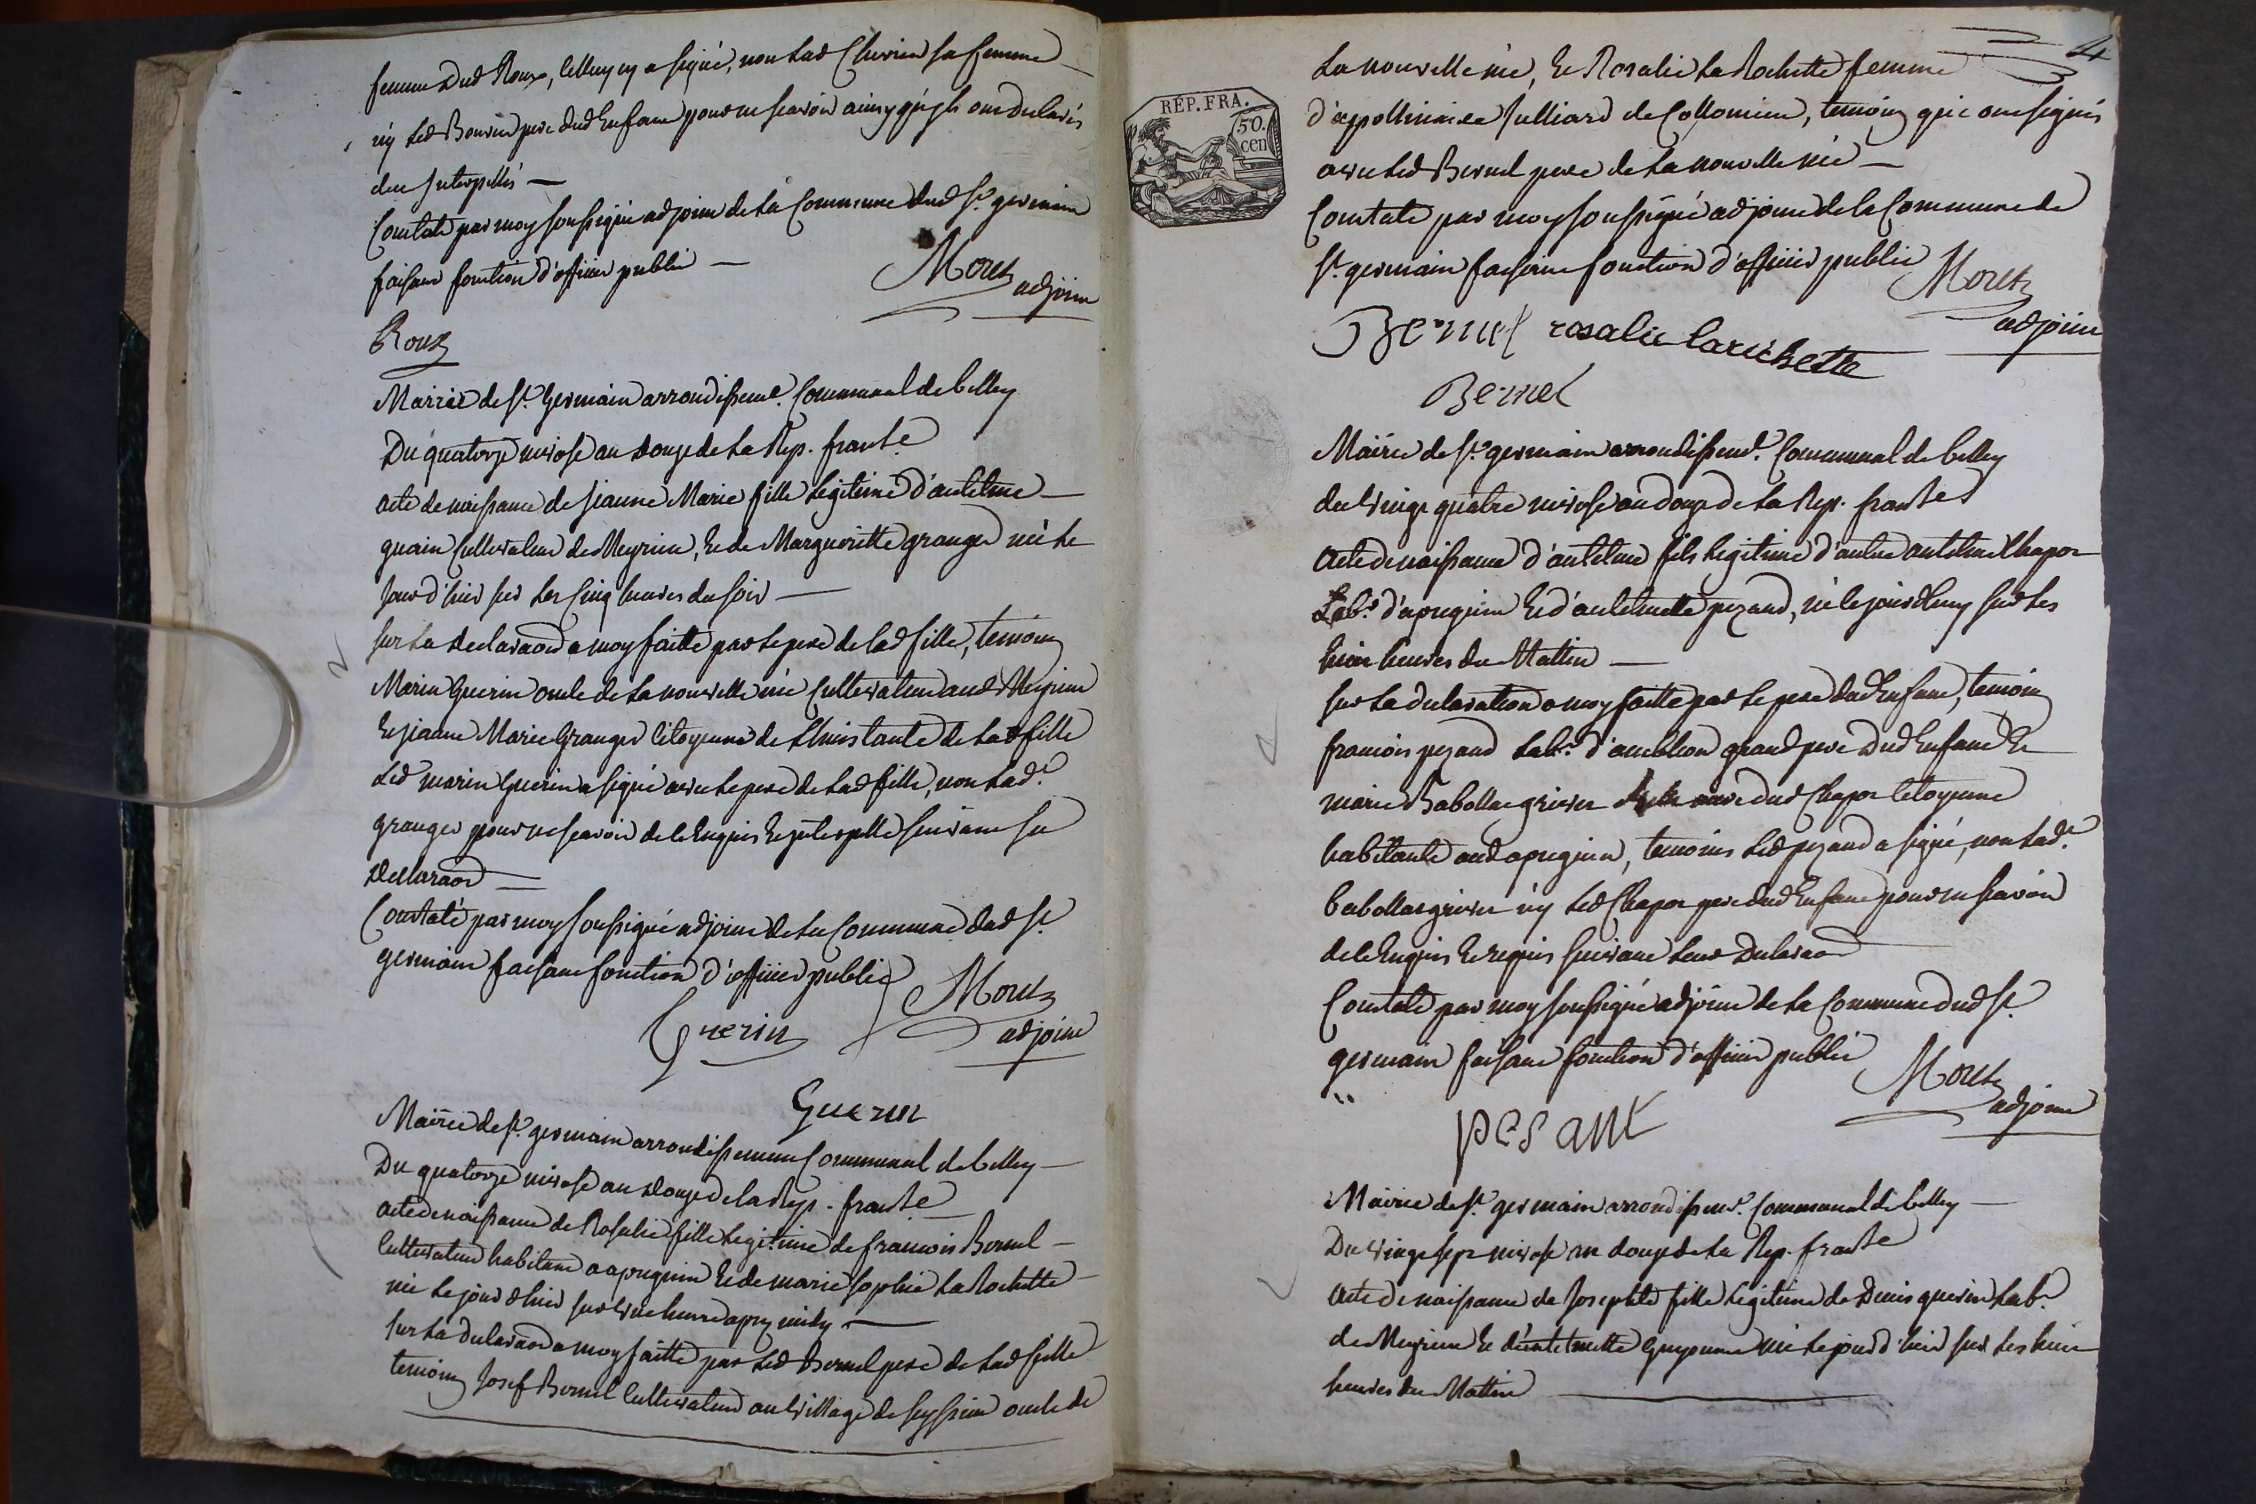 femme dud Roux, celluy cy a signé, non lad Chevrier sa femme
n'y led Bouvier pere dud Enfant pour ne scavoir ainsy qu'ils ont declarés
du Interpellés —
Constaté par moy soussigné adjoint de la Commune dud St germain
faisant fonction d'officier public —
Moret adjoint
Roux
Mairie de St Germain arrondissemt Communal de belley
Du quatorze nivose an douze de la Rep. franse
acte de naissance de jeanne Marie fille legitime d'antelme
guerin Cultivateur de Meyrieu, Et de Margueritte granger née le
jour d'hier sur les Cinq heures du soir —
sur la declaraon a moy faitte par le pere de lad fille, temoins
Marin Guerin oncle de la nouvelle née Cultivateur aud Meyrieu
Et jeanne Marie Granger Citoyenne de tante de lad fille
led marin Guerin a signé avec le pere de lad fille, non lad.e
granger pour ne scavoir de ce Enquis Et interpellé suivant sa
declaraon —
Constaté par moy soussigné adjoint de la Commune dud St
germain faisant fonction d'officier public
Moret
Guerin
adjoint
Guerin
Mairie de St germain arrondissement Communal de belley —
Du quatorze nivose an douze de la Rep. franse
acte de naissance de Rosalie fille Legitime de francois Bernel —
Cultivateur habitant a apregnin Et de marie sophie La Rochette
née le jour d'hier sur une heure apres midy —
sur la declaraon a moy faitte par led Bernel pere de lad fille
temoins Josef Bernel Cultivateur au village de seyssieu oncle de
4
RÉP. FRA.
50.
cen
La nouvelle née, Et Rosalie La Rochette femme
d'appollinaire Julliard de Collomieu, temoins qui ont signés
avec led Bernel pere de la nouvelle née —
Constaté par moy soussigné adjoint de la Commune de
St germain faisant fonction d'officier public
Moret
adjoint
Bernel rosalie larichette
Bernel
Mairie de St germain arrondissemt Communal de belley
du vingt quatre nivose an douze de la Rep. franse
Acte de naissance d'antelme fils legitime d'autre antelme Chapot
Labr d'apregnin Et d'antelmette pezand, né le jour d'huy sur les
huit heures du Mattin —
sur la declaration a moy faitte par le pere dud Enfant, temoins
francois pezand Labr d'ambleon grand pere dud Enfant Et
marie Babollat grivier mere dud Chapot Citoyenne
habitante aud apregnin, temoins led pezand a signé, non lad.e
babollat grivier n'y led Chapot pere dud Enfant pour ne scavoir
de ce Enquis Et requis suivant leur declaraon
Constaté par moy soussigné adjoint de la Commune dud St
germain faisant fonction d'officier public
Moret
adjoint
pesant
Mairie de St germain arrondissemt Communal de belley —
Du vingt sept nivose an douze de la Rep. franse
Acte de naissance de Josephte fille legitime de Denis guerin Labr
de Meyrieu Et d'antelmette Guyonnet née le jour d'hier sur les huit
heures du Mattin —